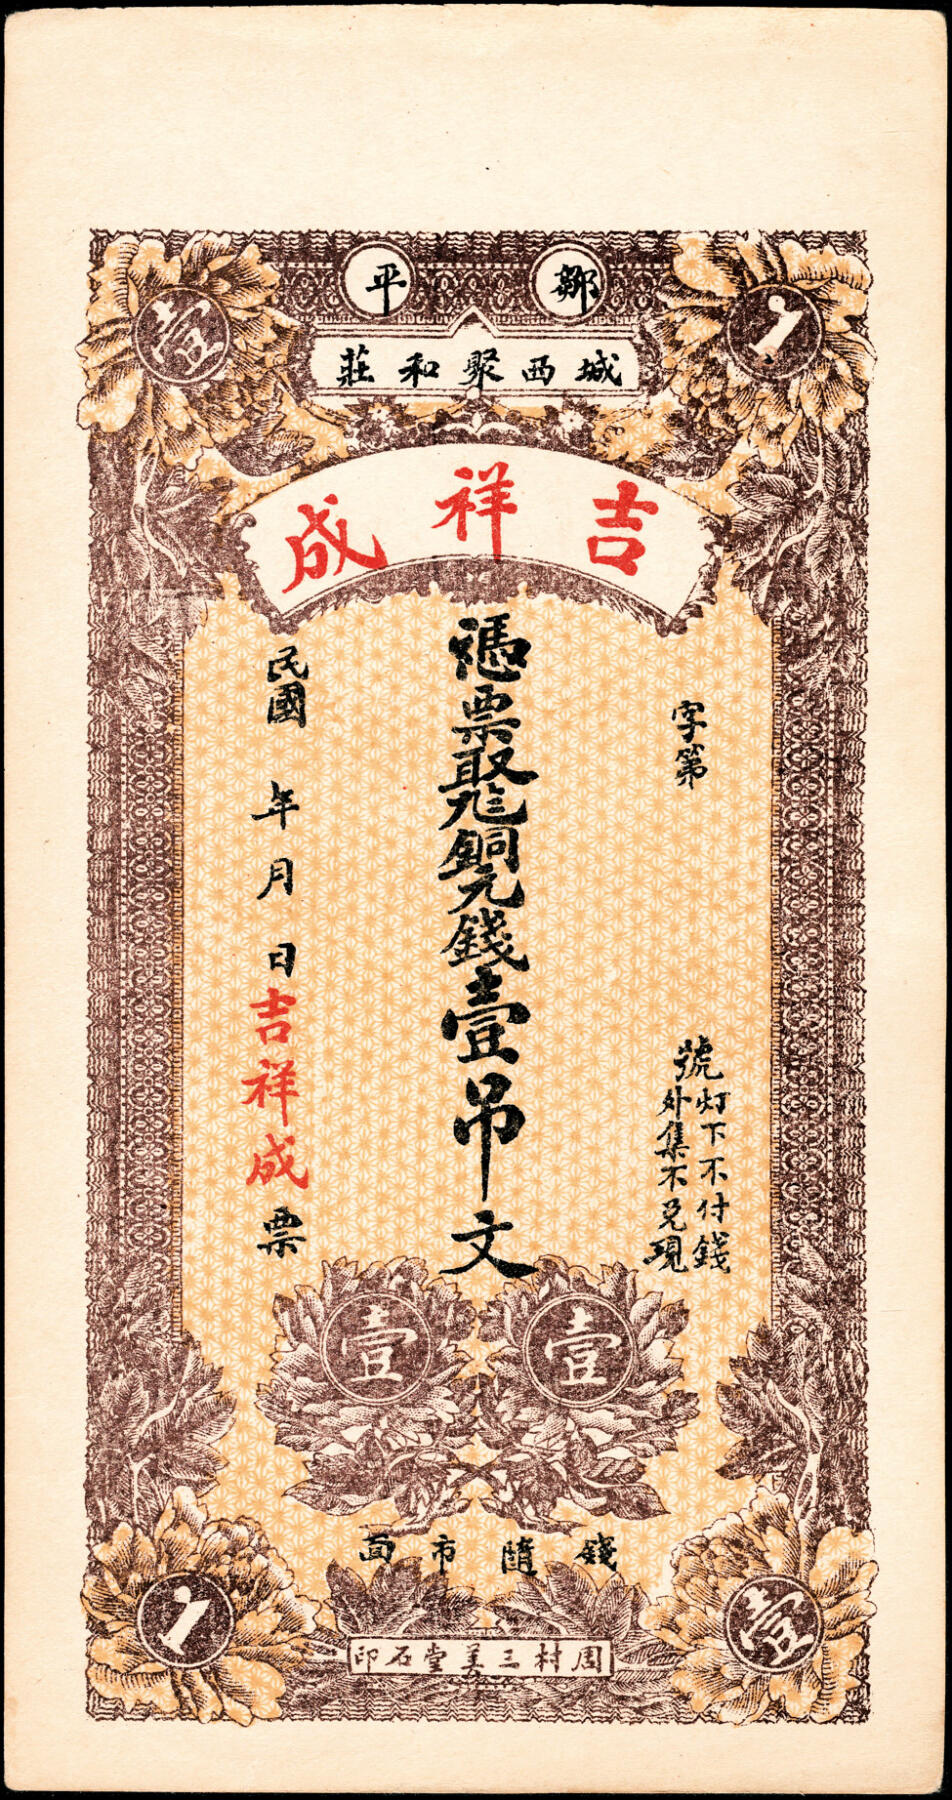 鄒平
壹
1
城西聚和莊
吉祥成
字第
號
灯下不付錢
外集不兌現
憑票取銅元錢壹吊文
民國 年 月 日吉祥成票
壹
壹
錢隨市面
1
壹
周村三美堂石印